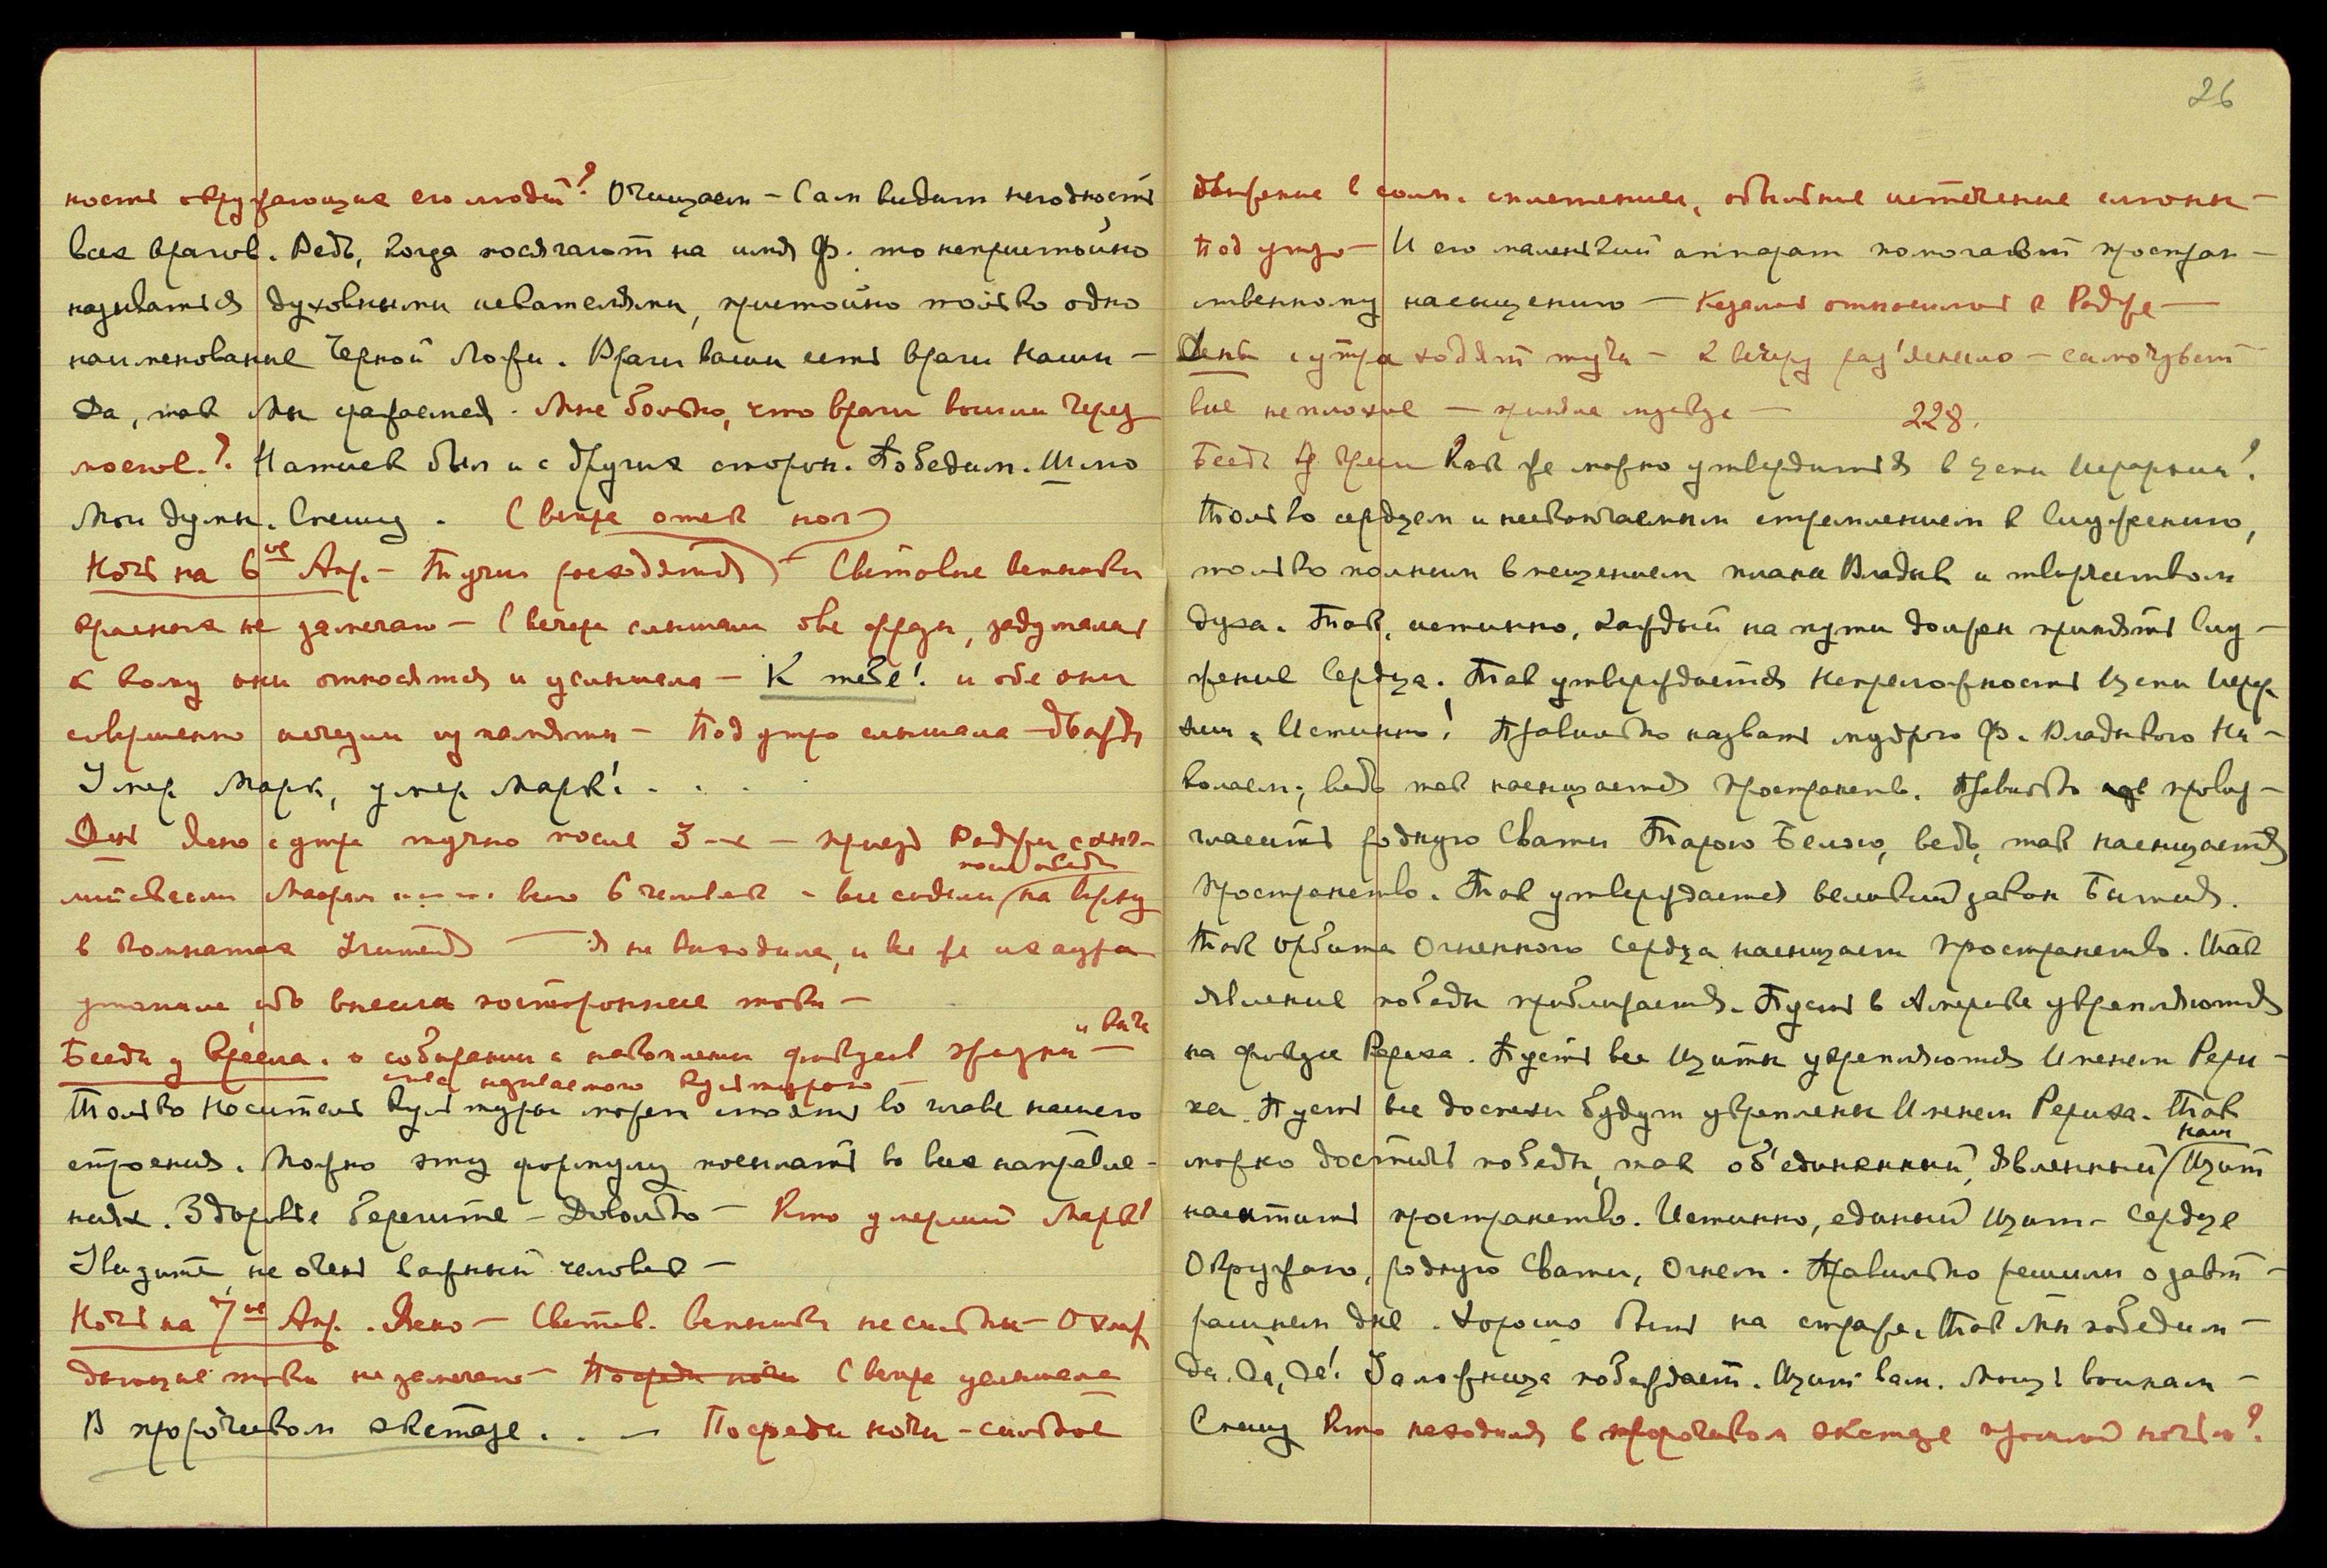 ности окружающих его людей? Очищаем – Сам видит негодность
всех врагов. Ведь, когда посягают на имя Ф. то непристойно
называться духовными искателями, пристойно только одно
наименование Черной Ложи. Враги ваши есть враги Наши –
Да, так Мы сражаемся. Мне больно, что враги вошли через
Натиск был и с других сторон. Победим. Шлю
Мои думы. Спешу. (Свеча
Ночь на 6ое Апр. – Тучи расходятся) – Световые вспышки
красных не замечаю – С вечера слышала обе фразы, задумалась
к кому они относятся и услышала – К тебе! и обе они
совершенно исчезли из памяти – Под утро слышала – дважды
Умер Марк, умер Марк! . . .
День Ясно с утра тучно после 3-х – приезд Раджи с
всего 6 человек – все сидели на верху
в комнатах – Я не выходила, и все же их аура
утомила, ибо внесла посторонние токи –
Беседа у Кресла. о собирании и накоплении
Только Носитель Культуры может стоять во главе нашего
строения. Можно эту формулу посылать во всех направле-
ниях. Здоровье берегите – Довольно – Кто умерший Марк?
Увидите, не очень важный человек –
Ночь на 7ое Апр. Ясно – Светов. вспышки не сильны – Охлаж
дающие токи не замечаю – Посреди ночи С вечера услышала
В пророческом экстазе . . – Посреди ночи – сильное
26
движение в солн. сплетении, обильное истечение слюны –
Под утро – И его маленький аппарат помогает простран-
ственному насыщению – Казалось относилось к Радже –
День с утра ходят тучи – к вечеру раз'яснело – самочувст
вие неплохое –
228.
Беседа Как же можно утвердиться в цепи Иерархии?
Только сердцем и нескончаемым стремлением к Служению,
только полным вмещением плана Владык и творчеством
духа. Так, истинно, каждый на пути должен принять Слу-
жение Сердца. Так утверждается Непреложность Цепи Иерар
хии. Истинно! Правильно назвать мудрого Ф. Владыкою Ни-
колаем, ведь так насыщается Пространств. Правильно провоз-
гласить родную Свати Тарою Белою, ведь, так насыщается
Пространство. Так утверждается великий закон Бытия.
Так орбита Огненного Сердца насыщает Пространство. Так
явление победы приближается. Пусть в Америке укрепляются
на Рериха. Пусть все Щиты укрепляются Именем Рери-
ха. Пусть все доспехи будут укреплены Именем Рериха. Так
наш
можно достичь победы, так об'единенный, явленный Щит
насытит пространство. Истинно, единый Щит – Сердце
Окружаю, родную Свати, Огнем. Правильно решили о завт-
рашнем дне. Хорошо быть на страже. Так Мы победим –
Да, Да, Да! побеждает. Щит вам. Мощь воинам –
Спешу Кто находился в пророческом экстазе прошлой ночью?